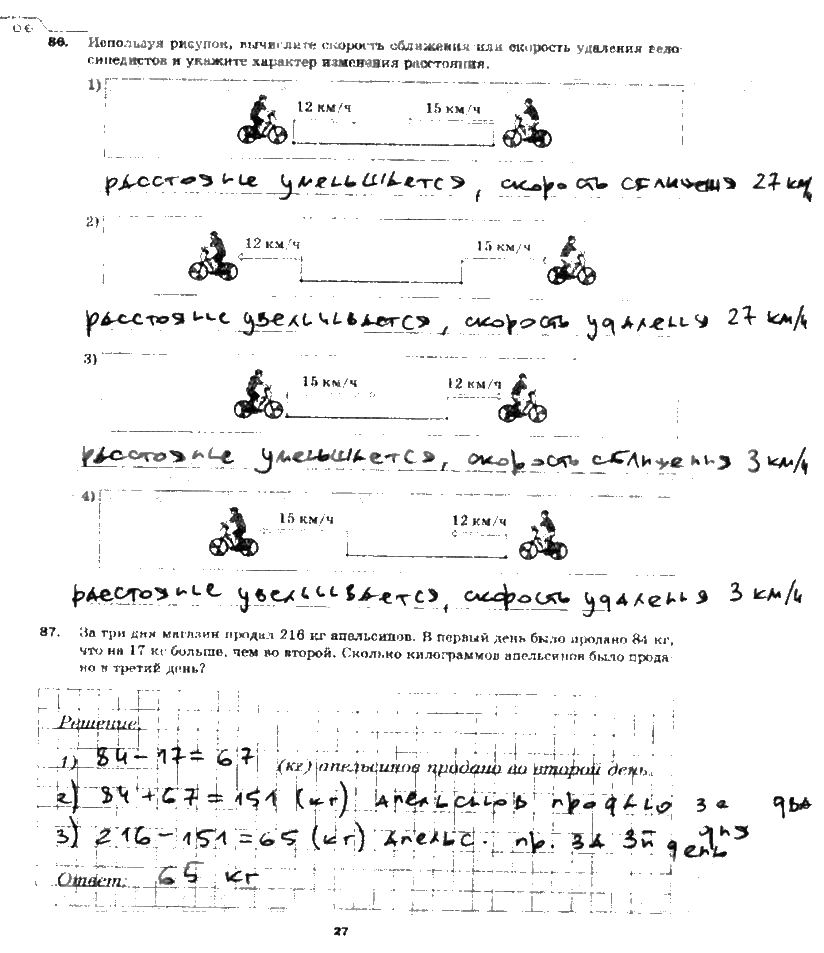 86. Используя рисунок, вычислите скорость сближения или скорость удаления вело-
сипедистов и укажите характер изменения расстояния.
1) 12 км/ч 15 км/ч
расстояние уменьшается, скорость сближения 27 км/ч
2) 12 км/ч 15 км/ч
расстояние увеличивается, скорость удаления 27 км/ч
3) 15 км/ч 12 км/ч
расстояние уменьшается, скорость сближения 3 км/ч
4) 15 км/ч 12 км/ч
расстояние увеличивается, скорость удаления 3 км/ч
87. За три дня магазин продал 216 кг апельсинов. В первый день было продано 84 кг,
что на 17 кг больше, чем во второй. Сколько килограммов апельсинов было прода-
но в третий день?
Решение.
1) 84 - 17 = 67 (кг) апельсинов продано во второй день.
2) 84 + 67 = 151 (кг) апельсинов продано за два
дня
3) 216 - 151 = 65 (кг) апельс. пр. за 3й день
Ответ: 65 кг
27